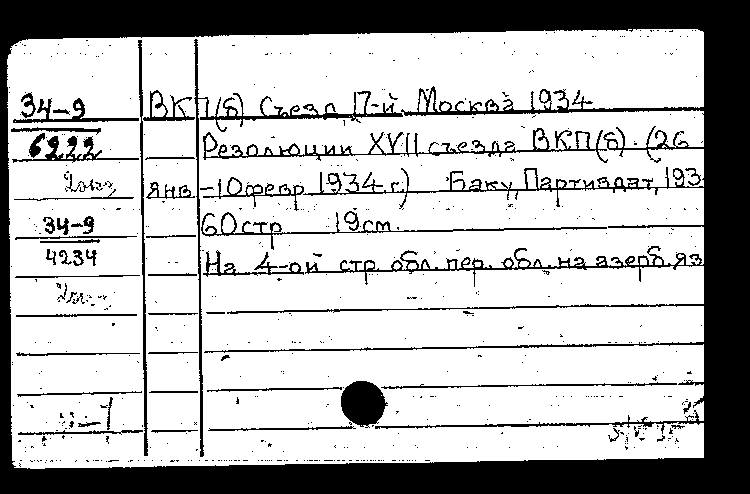 34-9 ВКП(б) Съезд 17-й. Москва 1934
6222 Резолюции XVII съезда ВКП(б). (26
янв -10 февр 1934 г.) Баку, Партиздат, 193
34-9 60 стр 19 см.
4234 На 4-ой стр. обл. пер. обл. на азерб. яз